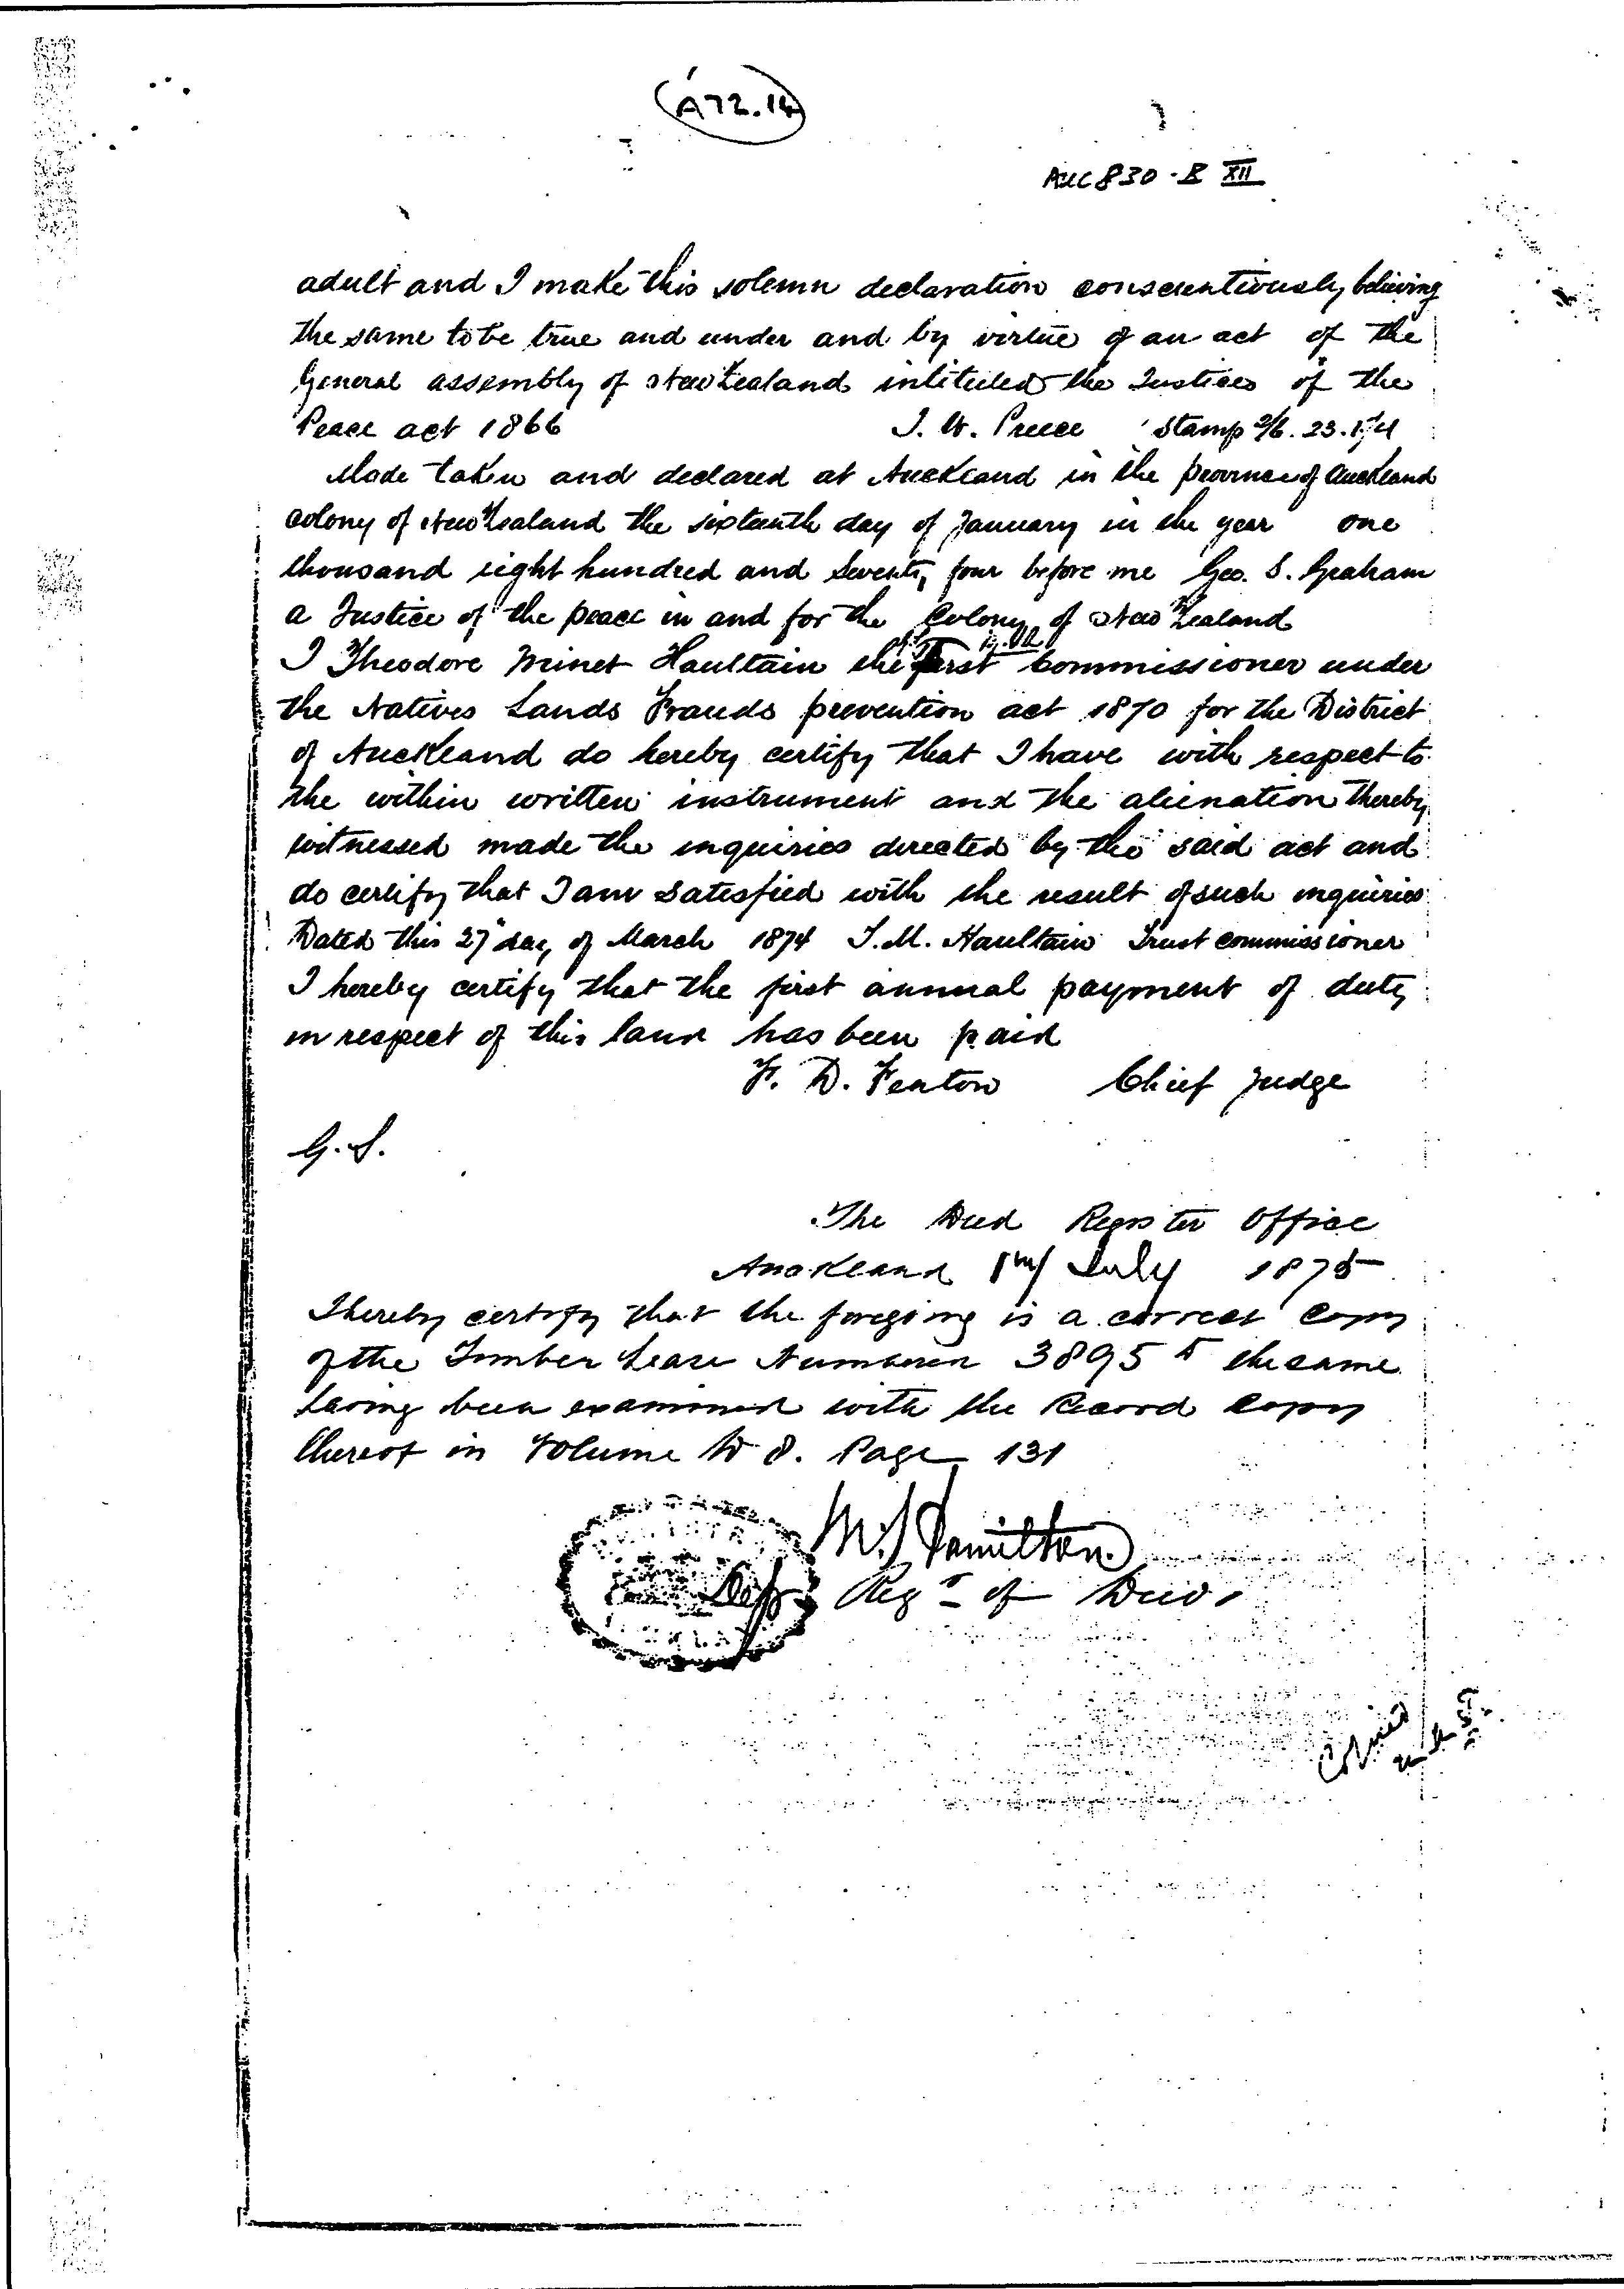 A72.14
AUC 830-B XII
adult and I make this solemn declaration conscientiously believing
the same to be true and under and by virtue of an act of the
General assembly of New Zealand intituled the Justices of the
Peace act 1866 J. W. Preece Stamp 2/6. 23.1.74
Made taken and declared at Auckland in the province of Auckland
Colony of New Zealand the sixteenth day of January in the year one
thousand eight hundred and Seventy four before me Geo. S. Graham
a Justice of the peace in and for the Colony of New Zealand
I Theodore Minet Haultain the Commissioner under
the Natives Lands Frauds prevention act 1870 for the District
of Auckland do hereby certify that I have with respect to
the within written instrument and the alienation thereby
witnessed made the inquiries directed by the said act and
do certify that I am Satisfied with the result of such inquiries
Dated this 27 day of March 1874 T. M. Haultain Trust Commissioner
I hereby certify that the first annual payment of duty
in respect of this land has been paid
F. D. Fenton Chief Judge
G. S.
The Deed Register Office
Auckland July 1875
I hereby certify that the foregoing is a correct Copy
of the Timber Lease Numbered 3895 the same
having been examined with the Record Copy
thereof in Volume W 8. Page 131
Hamilton
Dep Regr of Deeds
Copied